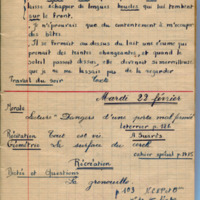 laisse échapper de longues boucles qui lui tombent
sur le front.
2) Il n'éprouve que du contentement à s'occuper
des bêtes.
3) Il se formait au dessus du lait une crème qui
prenait des teintes changeantes, et quand le soleil
passait dessus, elle devenait si merveilleuse
que je ne me lassais pas de la regarder
Travail du soir Texte
Mardi 23 février
Morale
Lecture: Dangers d'une porte mal fermée
Récitation Tout est vie. A. Suarès
Géométrie La surface du cercle
cahier spécial p.
Récréation
Dictée et Questions
La grenouille
p 103